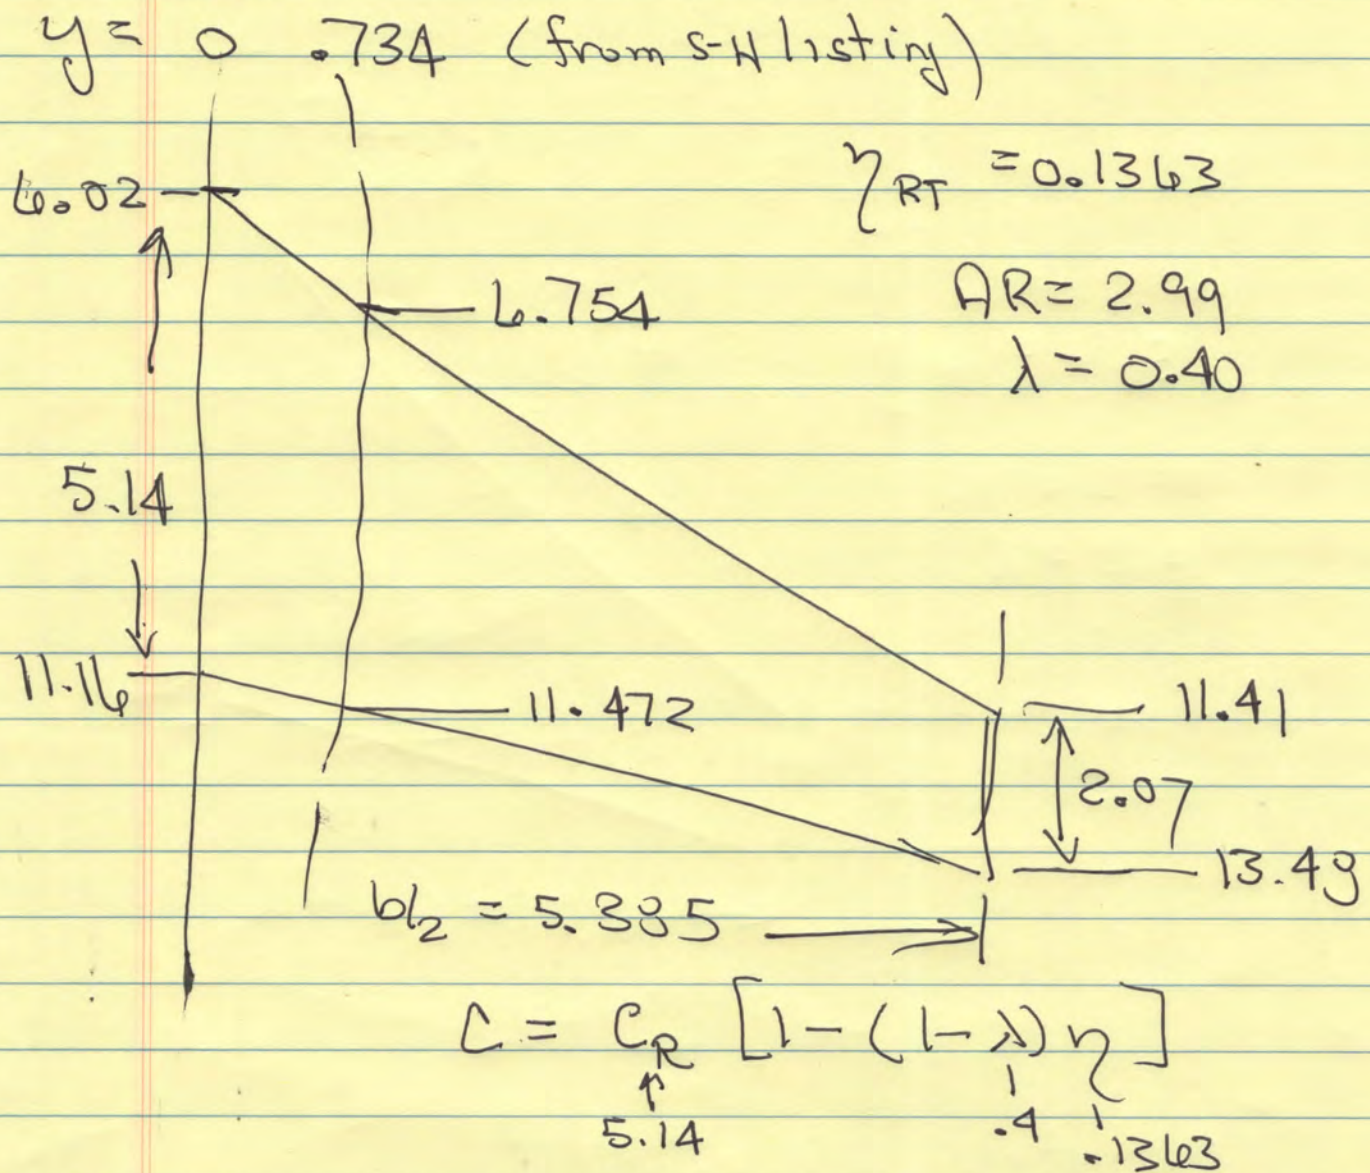 y = 0 .734 (from S-H listing)
6.02
η_RT = 0.1363
6.754
AR = 2.99
λ = 0.40
5.14
11.16
11.472
11.41
2.07
13.48
b/2 = 5.385
C = C_R [1 - (1 - λ) η]
5.14 .4 .1363